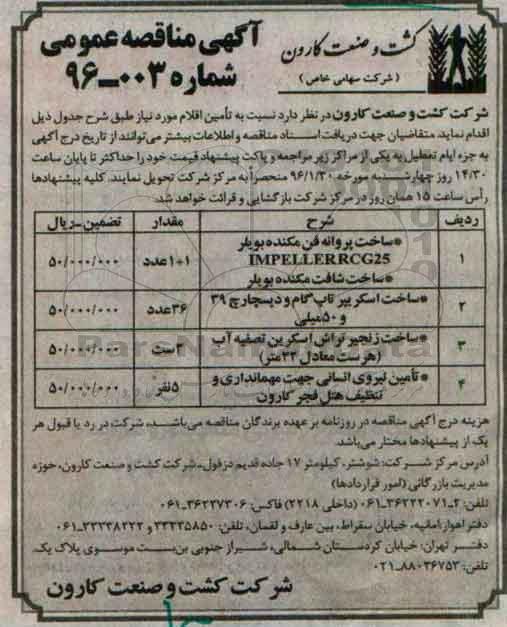 کشت و صنعت کارون
(شرکت سهامی خاص)
آگهی مناقصه عمومی
شماره ۰۰۳-۹۶
شرکت کشت و صنعت کارون در نظر دارد نسبت به تأمین اقلام مورد نیاز طبق شرح جدول ذیل
اقدام نماید. متقاضیان جهت دریافت اسناد مناقصه و اطلاعات بیشتر می‌توانند از تاریخ درج آگهی
به جزء ایام تعطیل به یکی از مراکز زیر مراجعه و پاکت پیشنهاد قیمت خود را حداکثر تا پایان ساعت
۱۴/۳۰ روز چهارشنبه مورخه ۹۶/۱/۳۰ منحصراً به مرکز شرکت تحویل نمایند. کلیه پیشنهادها
رأس ساعت ۱۵ همان روز در مرکز شرکت بازگشایی و قرائت خواهد شد.
ردیف شرح مقدار تضمین-ریال
۱ *ساخت پروانه فن مکنده بویلر
IMPELLERRCG25
*ساخت شافت مکنده بویلر ۱+۱ عدد ۵۰/۰۰۰/۰۰۰
۲ *ساخت اسکریپر تاپ گام و دیسچارج ۳۹
و ۵۰ میلی ۳۶ عدد ۵۰/۰۰۰/۰۰۰
۳ *ساخت زنجیر تراش اسکرین تصفیه آب
(هر ست معادل ۲۲ متر) ۲ ست ۵۰/۰۰۰/۰۰۰
۴ *تأمین نیروی انسانی جهت مهمانداری و
تنظیف هتل فجر کارون ۵ نفر ۵۰/۰۰۰/۰۰۰
هزینه درج آگهی مناقصه در روزنامه بر عهده برندگان مناقصه می‌باشد، شرکت در رد یا قبول هر
یک از پیشنهادها مختار می‌باشد.
آدرس مرکز شرکت: شوشتر، کیلومتر ۱۷ جاده قدیم دزفول، شرکت کشت و صنعت کارون، حوزه
مدیریت بازرگانی (امور قراردادها)
تلفن: ۲-۳۶۲۲۲۰۷۱-۰۶۱ (داخلی ۲۲۱۸) فاکس: ۳۶۲۲۷۳۰۶-۰۶۱
دفتر اهواز: امانیه، خیابان سقراط، بین عارف و لقمان، تلفن: ۳۳۳۳۵۸۵۰ و ۳۳۳۳۸۲۲۲-۰۶۱
دفتر تهران: خیابان کردستان شمالی، شیراز جنوبی بن‌بست موسوی پلاک یک.
تلفن: ۸۸۰۳۶۷۵۳-۰۲۱
شرکت کشت و صنعت کارون